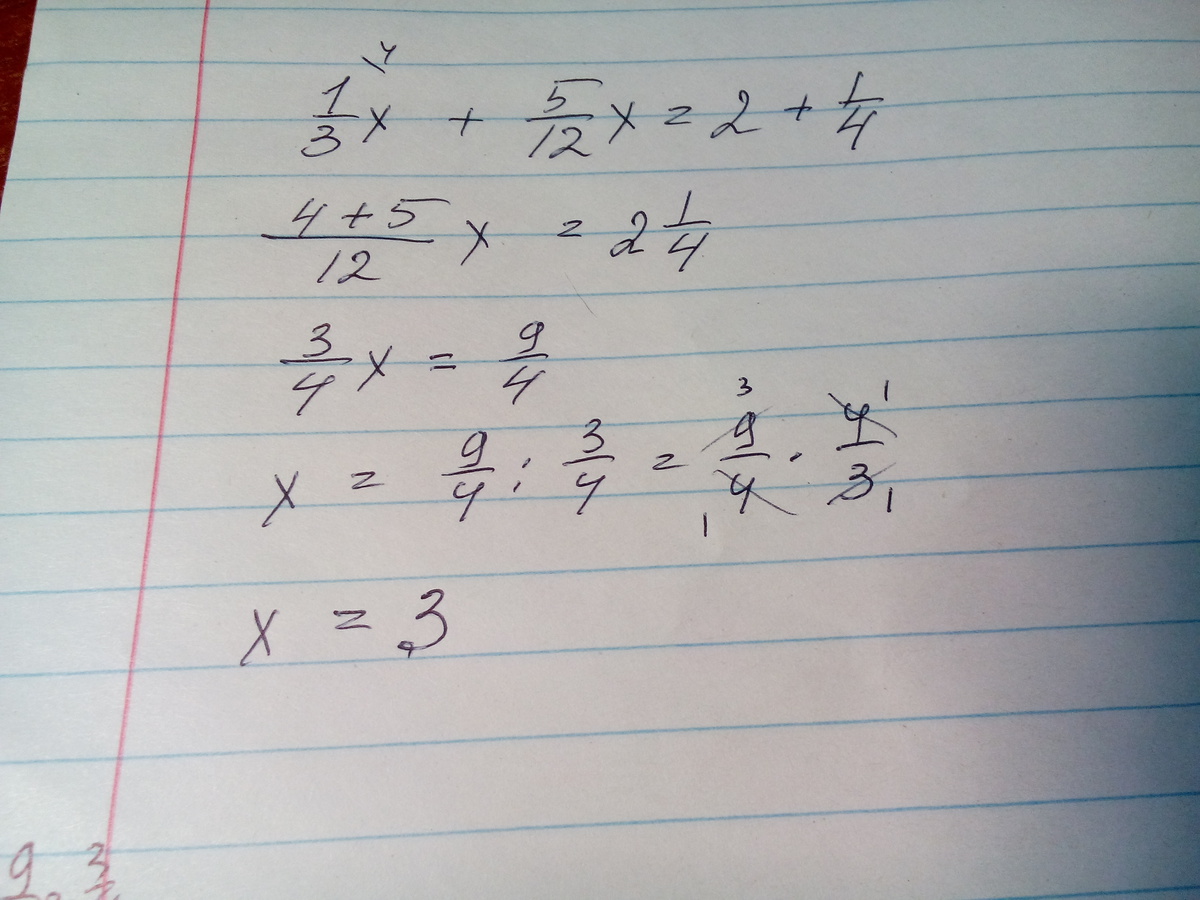 4
1/3 x + 5/12 x = 2 + 1/4
(4+5)/12 x = 2 1/4
3/4 x = 9/4
x = 9/4 : 3/4 = 9/4 · 4/3
3 1
1 1
x = 3